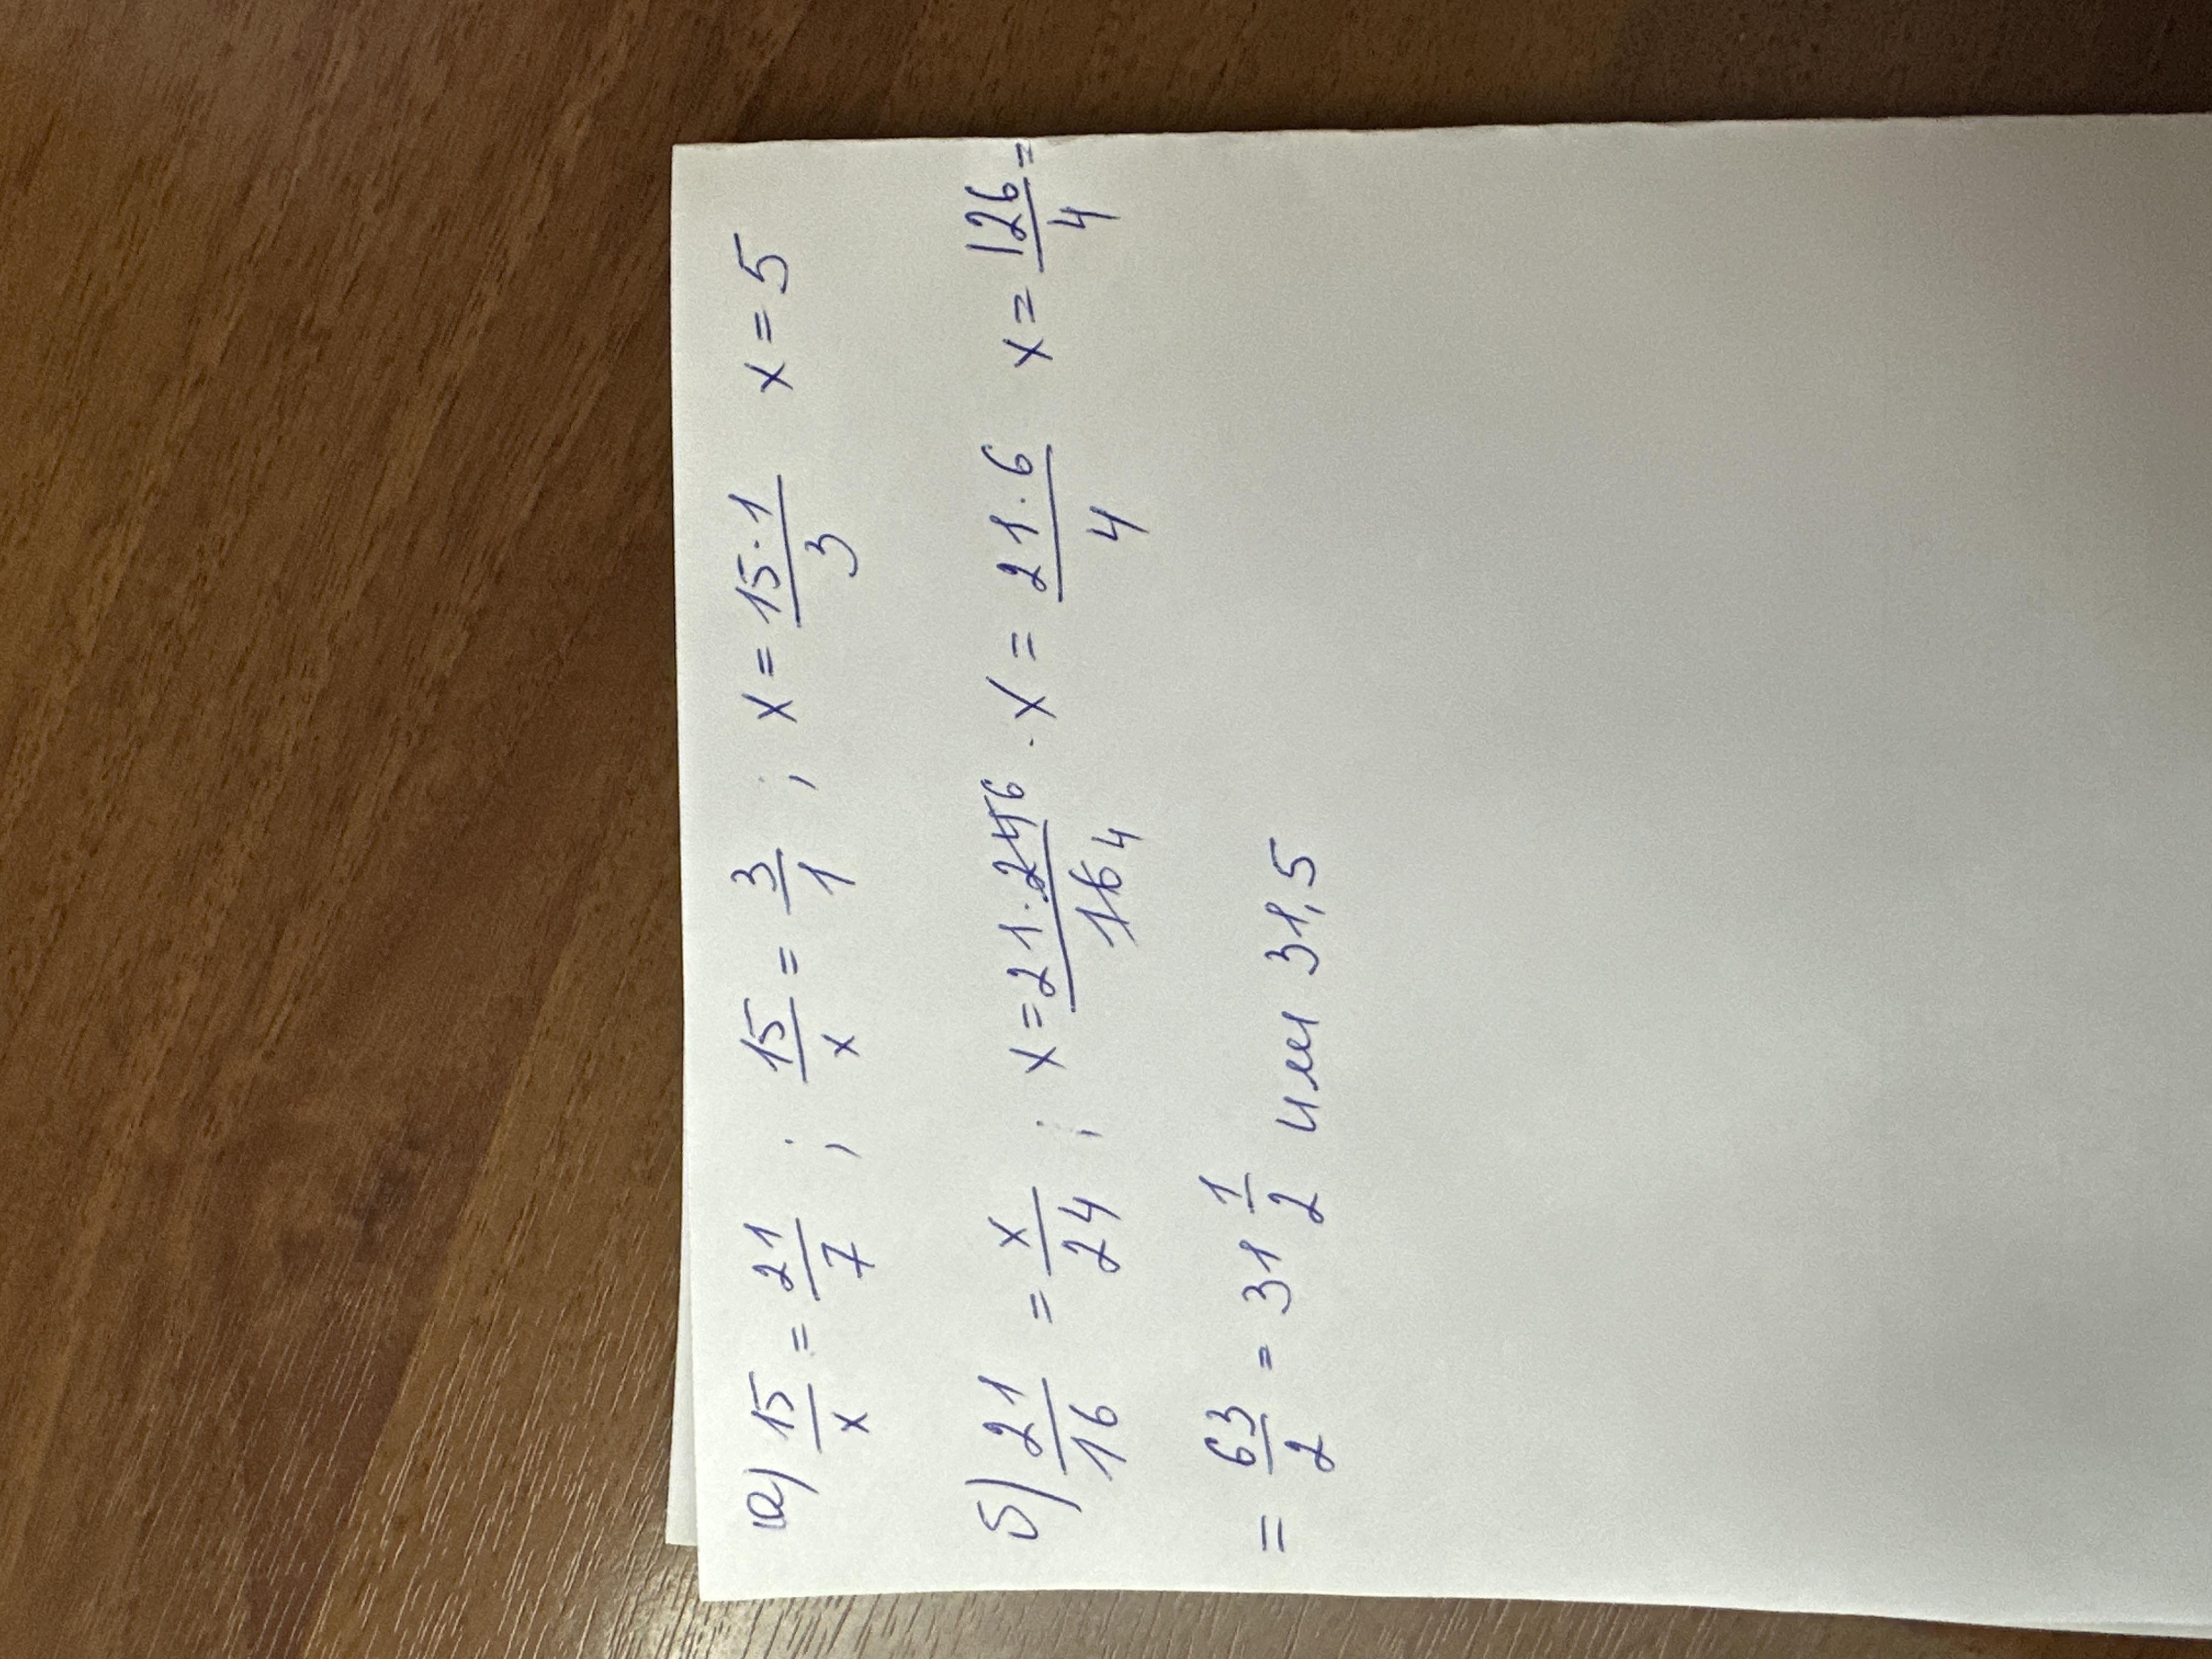 а) 15/x = 21/7 ; 15/x = 3/1 ; x = 15·1/3 x = 5
б) 21/16 = x/24 ; x = 21·24 6/16 4 . x = 21·6/4 x = 126/4 =
= 63/2 = 31 1/2 или 31,5